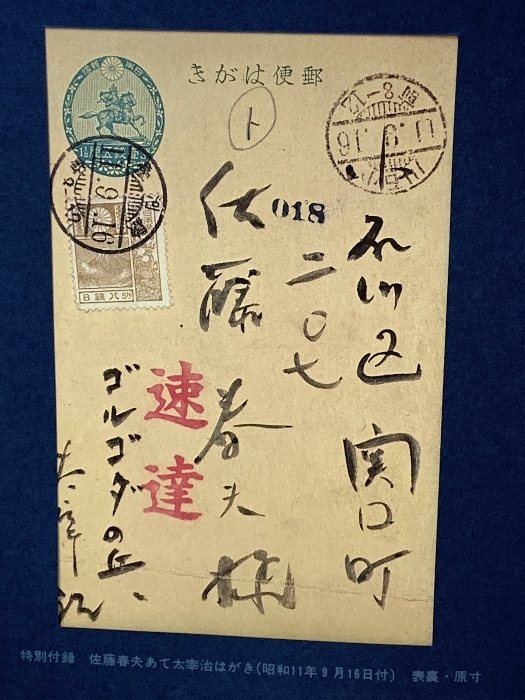 郵便はがき
ト
018
石川区 関口町
二〇七
佐藤春夫様
速達
ゴルゴダの丘、
太宰治
11.9.16
特別付録　佐藤春夫あて太宰治はがき(昭和11年9月16日付)　表裏・原寸